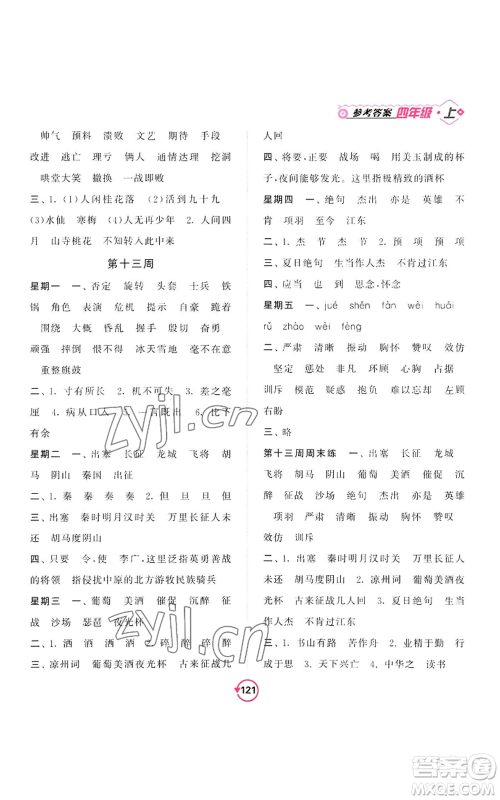 参考答案 四年级·上
帅气 预料 溃败 文艺 期待 手段
改进 逃亡 牙膏 俩人 通情达理 挖洞
哄堂大笑 撤换 一战即败
三、1.(1)人闲桂花落 (2)活到九十九
(3)水仙 寒梅 (4)骄傲 2.人间四
月 山寺桃花 不知转入此中来
第十三周
星期一 一、否定 旋转 头套 士兵 铁
锅 角色 表演 危机 提高 自豪 跪着
围绕 大概 昏乱 乘机 司令 吩咐
顽强 摔倒 恨不得 冰天雪地 毫不在意
重整旗鼓
二、1.寸有所长 2.机不可失 3.差之毫
厘 4.病从口入 5.一言既出 6.比下
有余
星期二 一、出塞 长征 龙城 飞将
马 阴山 秦国 出征
二、1.秦 秦 奏 奏 2.但 旦 但 旦
三、出塞 秦时明月汉时关 万里长征人
未还 胡马度阴山
四、只要 令，使 李广，英勇善战
的将领 指侵扰中原的北方游牧民族骑兵
星期三 一、葡萄 美酒 催促 沉醉 征
战 沙场 琵琶 夜光杯
二、1.洒 酒 洒 酒 2.碎 醉 碎 醉
三、凉州词 葡萄美酒夜光杯 古来征战几
人回
四、将要，正要 战场 喝 用美玉制成的杯
子，夜间能够发光。这里指极精致的酒杯
星期四 一、绝句 杰出 亦是 英雄 不
肯 项羽 至今 江东
二、1.杰 节 杰 节 2.预 项 预 项
三、夏日绝句 生当作人杰 不肯过江东
四、应当 也 到 思念，怀念
星期五 一、jué shēn fān wèi huái
rǔ zhào wèi fēng
二、严肃 清晰 振动 胸怀 赞叹 效仿
坚定 惩处 非凡 环顾 心胸 占据
训斥 模范 疑惑 风采 振作 诞生 左顾
右盼
三、略
第十三周周末练 一、出塞 长征 龙城
飞将 胡马 阴山 葡萄 美酒 催促 沉
醉 征战 沙场 绝句 杰出 亦是 英雄
项羽 严肃 清晰 振动 胸怀 赞叹
效仿 训斥
二、1.出塞 秦时明月汉时关 万里长征人
未还 胡马度阴山 2.凉州词 葡萄美酒夜
光杯 古来征战几人回 3.夏日绝句 生当
作人杰 不肯过江东
三、1.书山有路 苦作舟 2.业精于勤 行
成于思 3.天下兴亡 4.中华之 读书
121